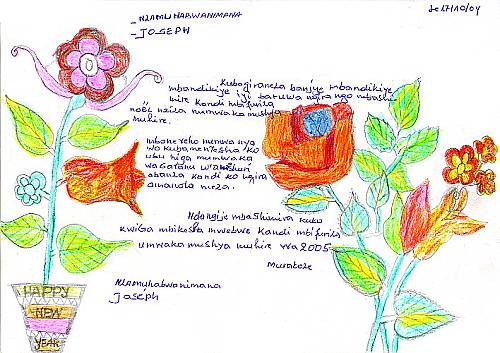 Le 27/10/04
- NIAMUHABWANIMANA
- JOSEPH
Kubagirancza banjye mbandikiye
mbandikiye iyi baruwa ngirango mbashi
mire kandi mbifuriza
noël nziza numwaka mushya
muhire.
mbonereho numwanya
wo kubamenyesha ko
ubu niga mumwaka
wagatanu w'amashuri
abanza kandi ko ngira
amanota meza.
Ndangije mbashimira kuko
kwiga mbikesha mwebwe kandi mbifuriza
umwaka mushya muhire wa 2005
Murakoze
Niamuhabwanimana
Joseph
HAPPY
NEW
YEAR